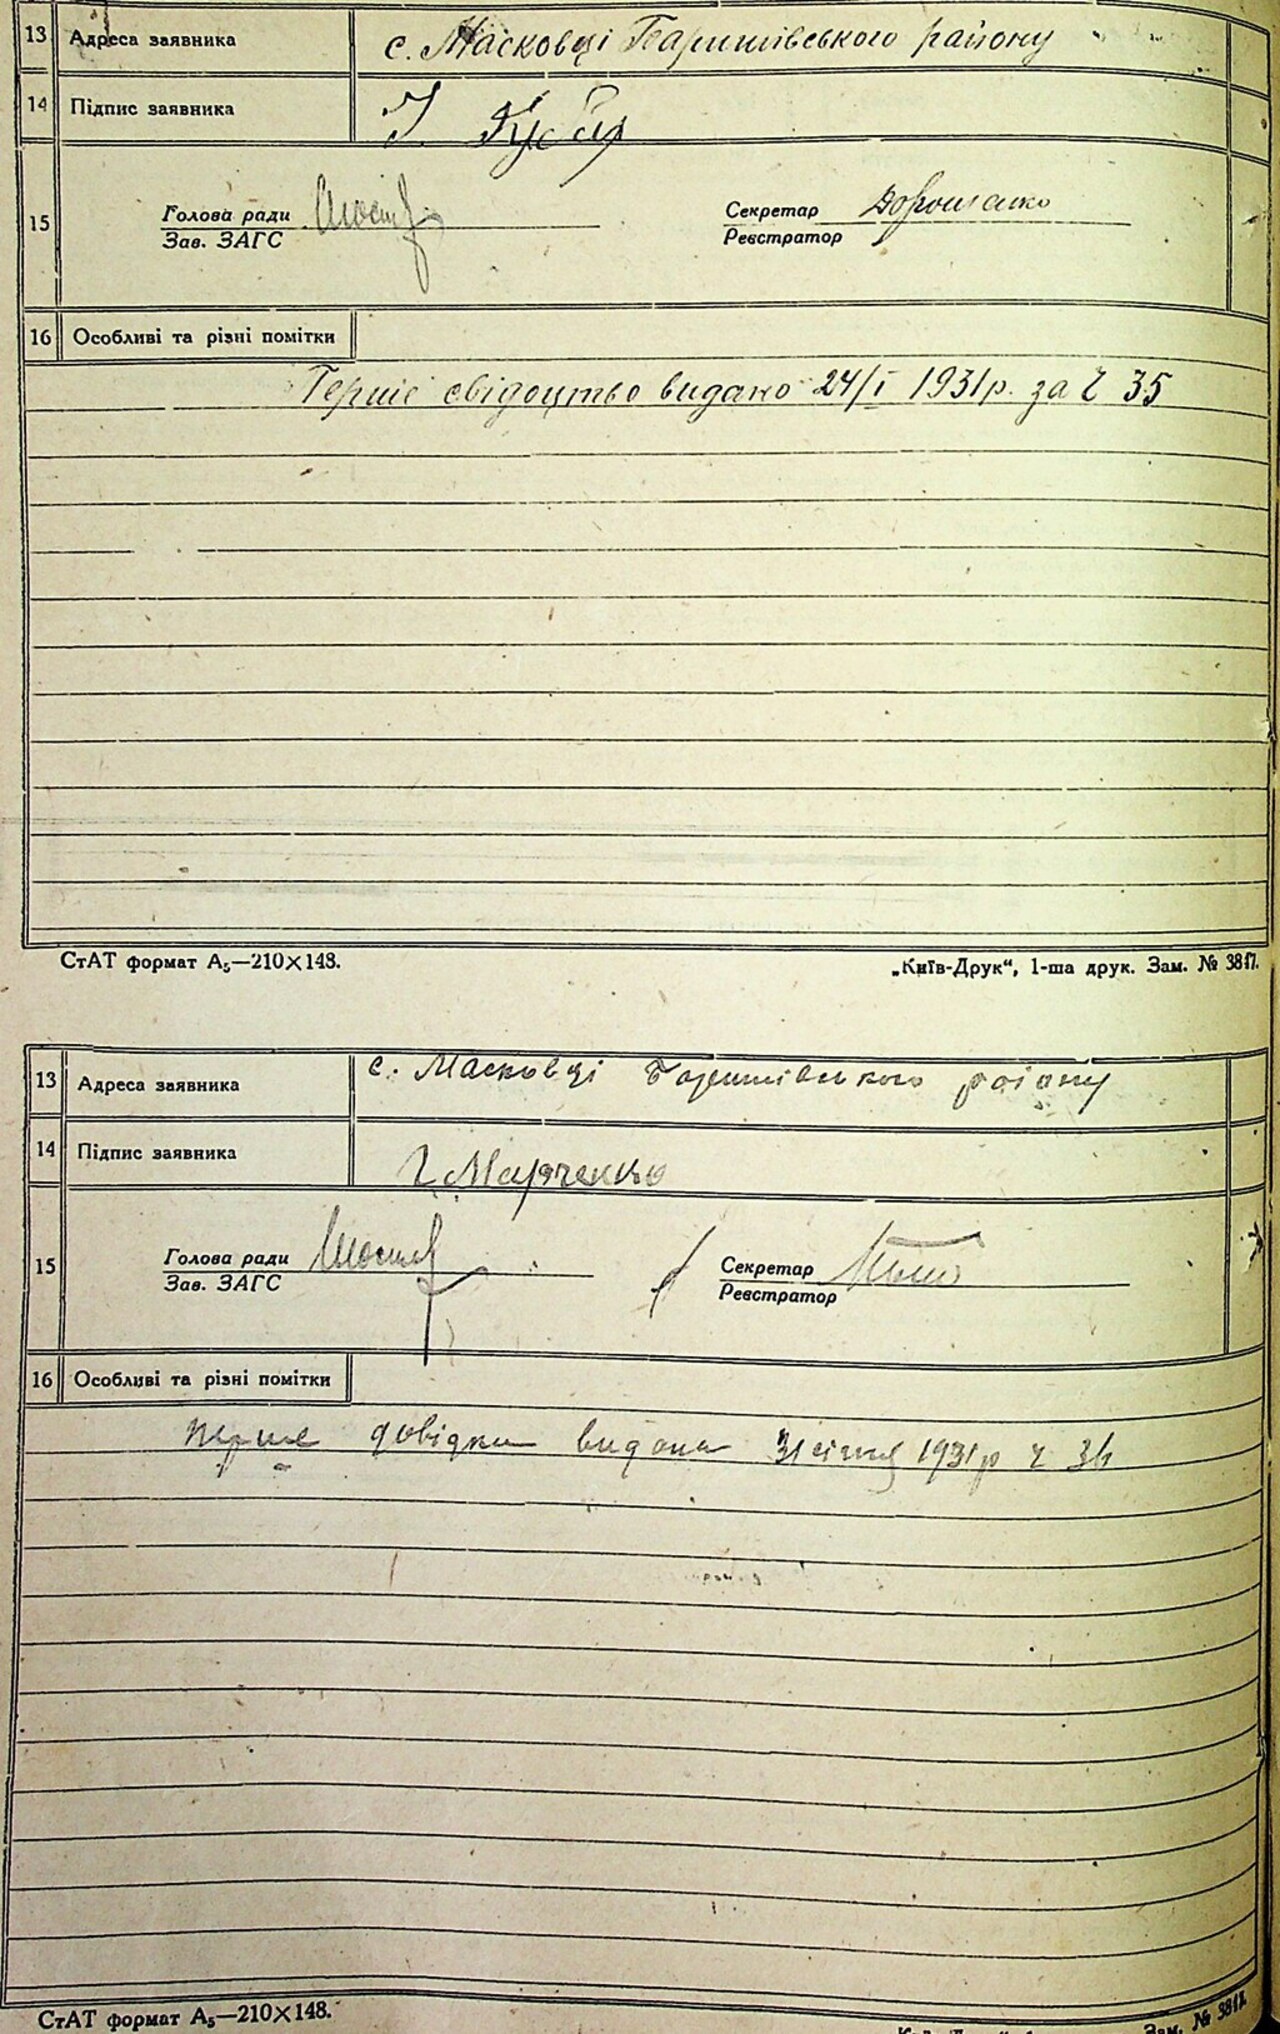 13 Адреса заявника с. Масковці Баришівського району
14 Підпис заявника
15
Голова ради
Зав. ЗАГС
Секретар Дорошенко
Реєстратор
16 Особливі та різні помітки
Перше свідоцтво видано 24/I 1931 р. за Ч 35
СтАТ формат А₅—210×148.
„Київ-Друк“, 1-ша друк. Зам. № 3817.
13 Адреса заявника с. Масковці Баришівського району
14 Підпис заявника Марченко
15
Голова ради
Зав. ЗАГС
Секретар
Реєстратор
16 Особливі та різні помітки
перше довідка видана 31 січня 1931 р Ч
СтАТ формат А₅—210×148.
Зам. № 3817.